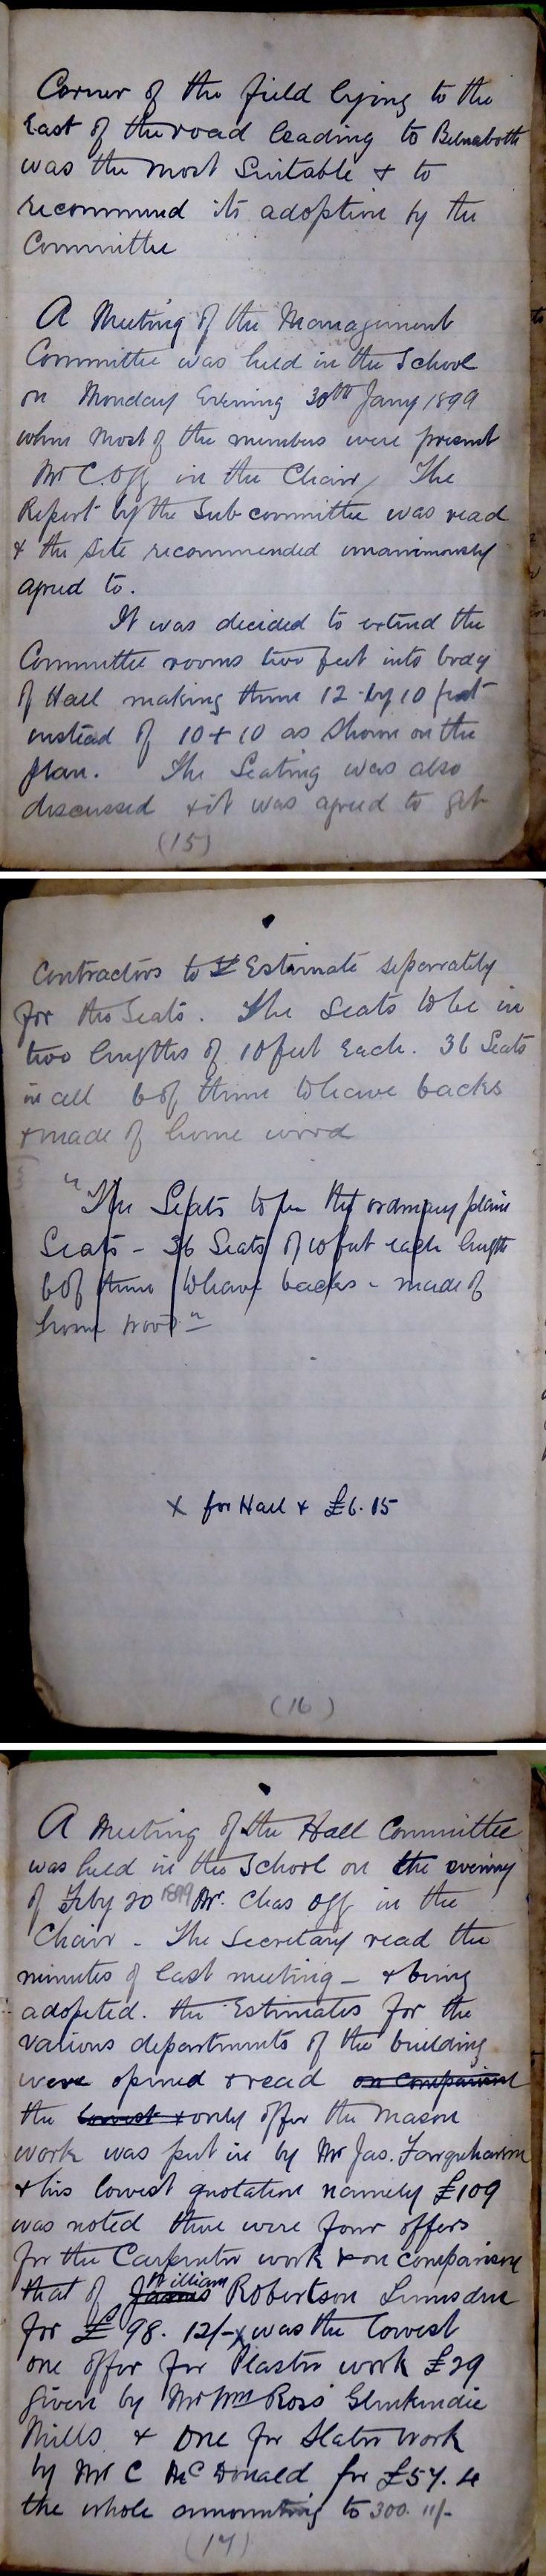 Corner of the field lying to the
East of the road leading to Belnaboth
was the most Suitable & to
recommend its adoption by the
Committee
A Meeting of the Management
Committee was held in the School
on Monday Evening 30th Jany 1899
when most of the members were present
Mr C. Ogg in the Chair, The
Report by the Sub committee was read
& the site recommended unanimously
agreed to.
It was decided to extend the
Committee rooms two feet into body
of Hall making them 12 by 10 feet
instead of 10 + 10 as shown on the
plan. The Seating was also
discussed & it was agreed to get
(15)
Contractors to Estimate separately
for the Seats. The Seats to be in
two lengths of 10 feet Each. 36 Seats
in all 6 of them to have backs
& made of home wood
"The Seats to be the ordinary plain
Seats - 36 Seats of 10 feet each length
6 of them to have backs - made of
home wood"
x for Hall & £6.15
(16)
A Meeting of the Hall Committee
was held in the School on the evening
of Feby 20 1899 Mr. Chas Ogg in the
Chair - The Secretary read the
minutes of last meeting - & being
adopted. the Estimates for the
various departments of the building
were opened & read on comparison
the lowest & only offer the Mason
work was put in by Mr Jas. Farquharson
& his lowest quotation namely £109
was noted there were four offers
for the Carpenter work & on comparison
that of James William Robertson Lumsden
for £98. 12/- x was the lowest
one offer for Plaster work £29
given by Mr Wm Ross Glenkindie
Mills & One for Slater work
by Mr C McDonald for £57. 4
the whole amounting to 300. 11/-
(17)